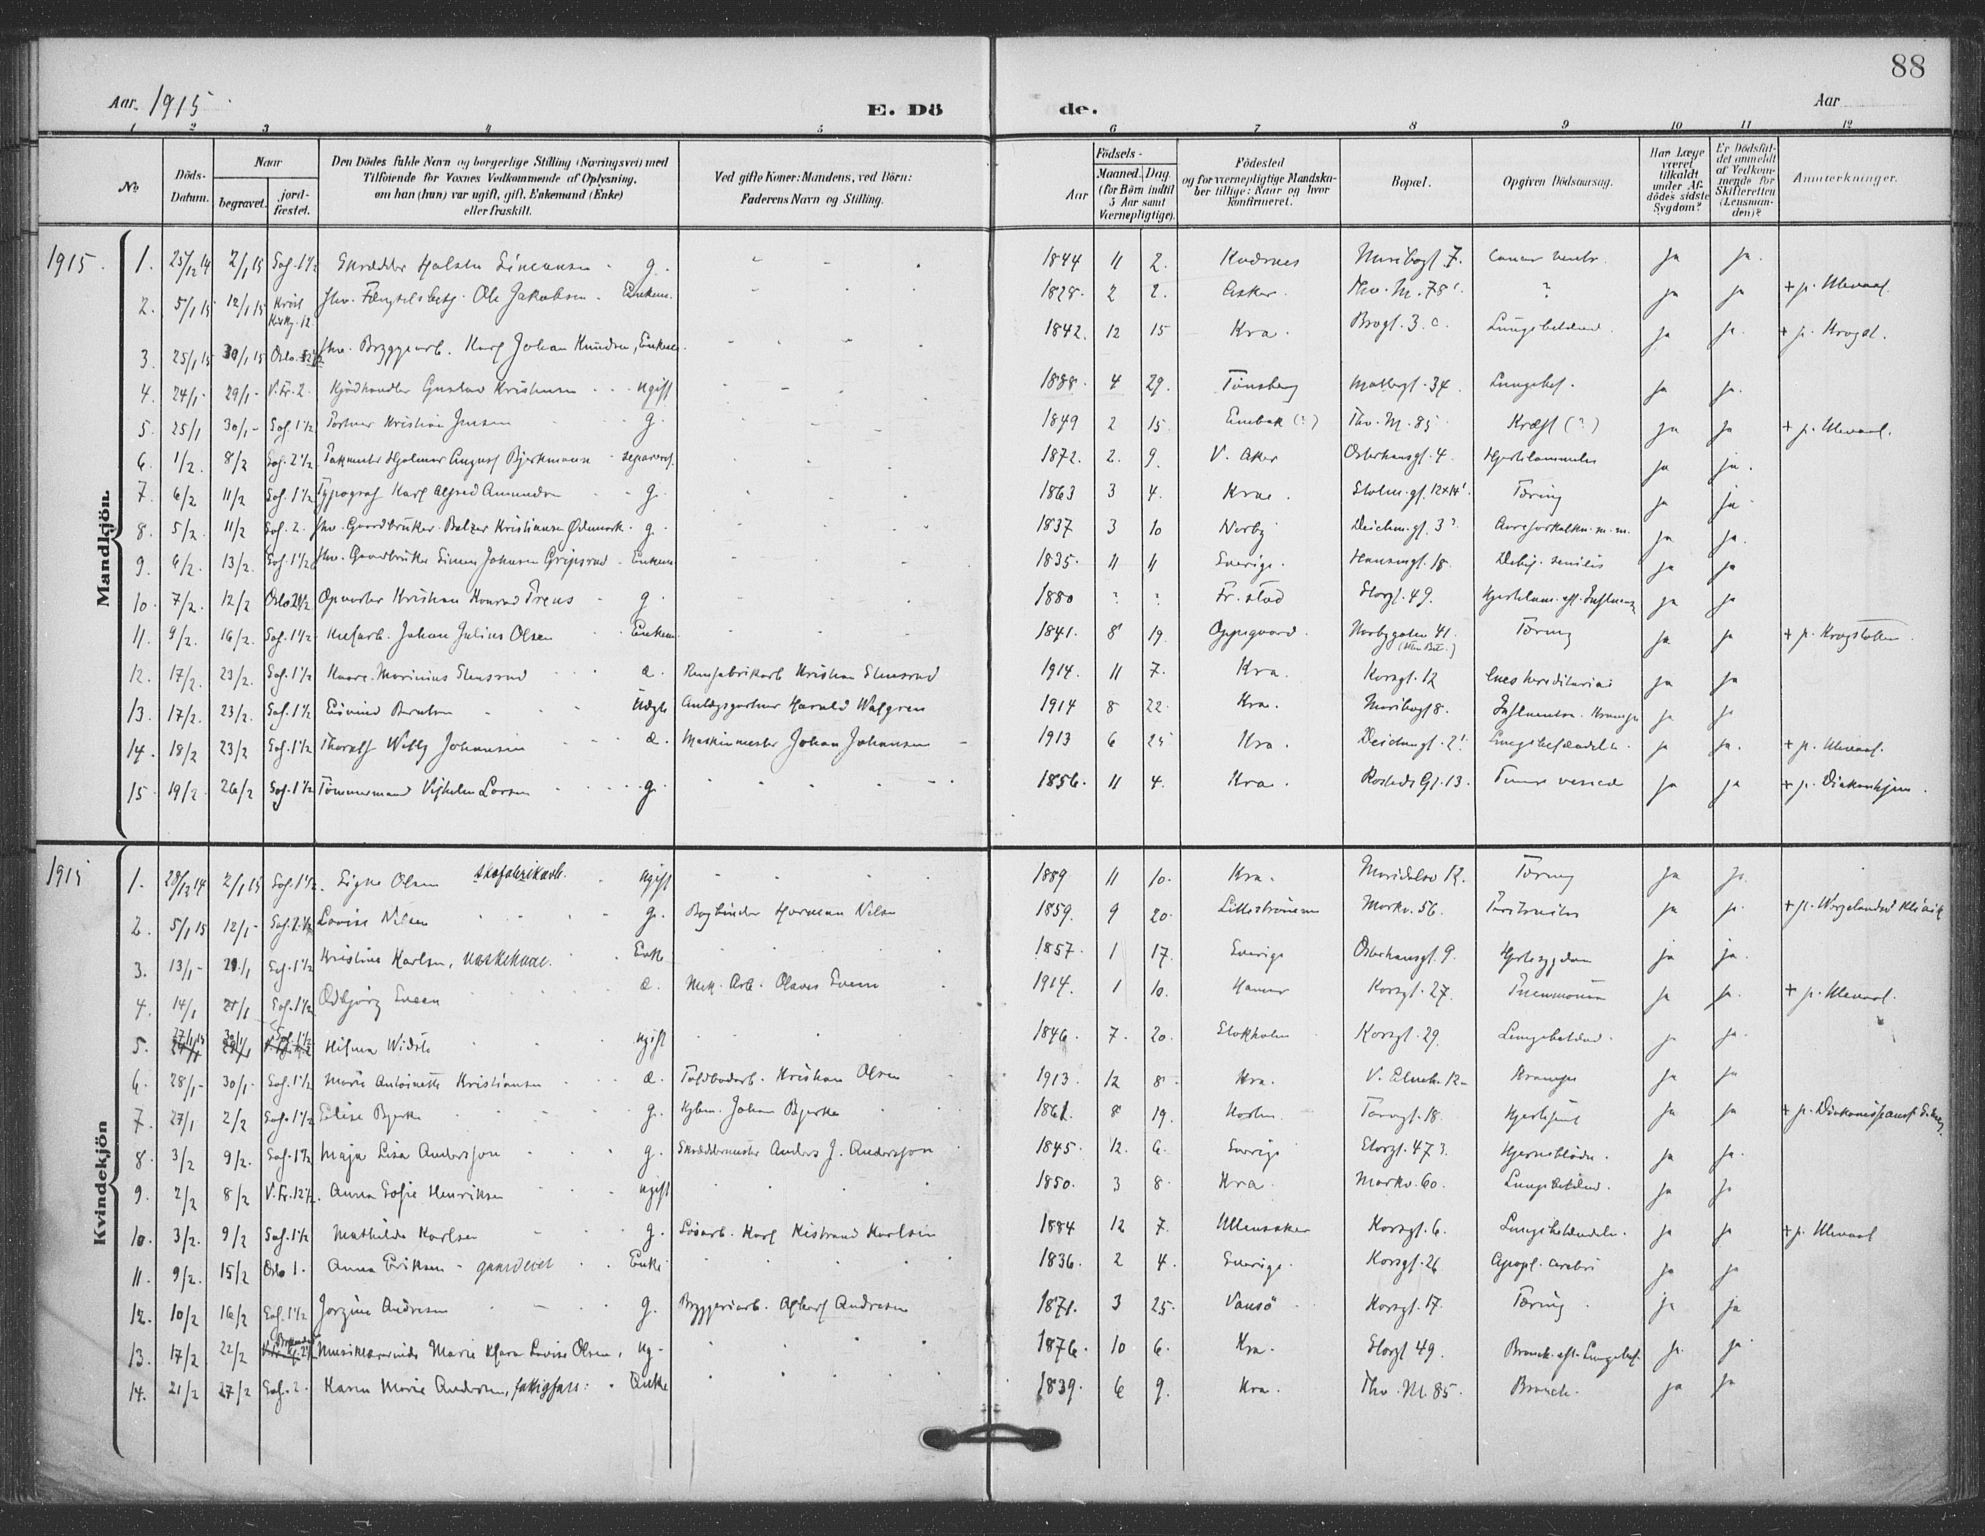 88
Aar. 1915
E. Dö de.
Aar
1 2 3 4 5 6 7 8 9 10 11 12
No
Döds-Datum.
Naar
begravet.
jord-fæstet.
Den Dödes fulde Navn og borgerlige Stilling (Næringsvei) med
Tilföiende for Voxnes Vedkommende af Oplysning,
om han (hun) var ugift, gift, Enkemand (Enke)
eller fraskilt.
Ved gifte Koner: Mandens, ved Börn:
Faderens Navn og Stilling.
Födsels-
Aar
Maaned. Dag.
(for Börn indtil
5 Aar samt
Værnepligtige).
Födested
og for værnepligtige Mandska-
ber tillige: Naar og hvor
konfirmeret.
Bopæl.
Opgiven Dödsaarsag.
Har Læge
været
tilkaldt
under Af-
dödes sidste
Sygdom?
Er Dödsfal-
det anmeldt
af Vedkom-
mende for
Skifteretten
(Lensman-
den)?
Anmerkninger.
Mandkjön.
1915. 1. 25/12 14 2/1 15 Sof. 1 1/2 Skrædder Halsten Simensen g. 1844 11 2. Maribogt 7. cancer ventr. ja ja.
2. 5/1 15 12/1 15 Krist Kirkg. 12 fhv. Fængselsbetj. Ole Jakobsen Enkem. 1828 2 2. Asker Thv. M. 78 ? ja ja + p. Ulevaal
3. 25/1 15 30/1 15 Oslo fhv. Bryggearb. Karl Johan Knudsen, Enkem. 1842. 12 15 Kra. Brogt. 3. c. Lungebetænd. ja ja. + p. Krogst.
4. 24/1 29/1 V. Fr. 2. Kjødhandler Gustav Kristensen ugift 1888 4 29. Tønsberg Møllergt. 34 Lungebet. ja ja.
5. 25/1 30/1 Sof. 1 1/2 Portner Kristian Jensen g. 1849 2 15. Enebak (?) Thv. M. 85 Kræft (?) ja ja + p. Ulevaal.
6. 1/2. 8/2 Sof. 2 1/2 Hjalmar August Bjerkmann separeret. 1872. 2. 9. V. Aker Osterhausgt. 4. Hjertelammelse ja ja.
7. 6/2 11/2 Sof. 1 1/2 Typograf Karl Alfred Amundsen g. 1863 3 4. Kra. Stolm. gt. 12 Tæring ja ja
8. 5/2. 11/2 Sof. 2. fhv. Gaardbruker Balzer Kristiansen Ødemark g. 1837 3 10 Norby Deichm. gt. 3 Aareforkalkn. m. m. ja ja.
9. 6/2 13/2. Sof. 1 1/2 fhv. Gaardbruker Simen Johnsen Gripsrud Enkem. 1835. 11 11 Sverige. Hausmgt. 18. Debil. senilis ja ja
10. 7/2. 12/2 Oslo 2 1/2 Opvarter Kristian Konrad Trens g. 1880 ? ? Fr. stad Storgt. 49. Hjertelam. eft. Influenza ja ja
11. 9/2. 16/2. Sof. 1 1/2 Johan Julius Olsen Enkem. 1841. 8 19. Oppegaard. Norbygaten 41. Tæring ja ja + p. Krogstøtten.
12. 17/2. 23/2. Sof. 1 1/2 Kaare Marinius Elmsrud æ. Kristian Elmsrud 1914. 11 7. Kra. Korsgt. 12 lues hereditaria ja ja
13. 17/2. 23/2. Sof. 1 1/2 Eivind Berntsen Uægte Anlægsgartner Harald Walgren 1914 8 22. Kra. Maribogt 8. Influenza. Krampe ja ja
14. 18/2 23/2 Sof. 1 1/2 Thoralf Willy Johansen æ. Maskinmester Johan Johansen 1913 6 25 Kra. Deichmgt. 2 Lungebetændelse. ja ja. + p. Ulevaal.
15. 19/2 26/2 Sof. 1 1/2 Tømmermand Vilhelm Larsen g. 1856. 11 4. Kra. Rosteds G. 13. Tumor vesicae ja ja + p. Diakonhjem.
Kvindekjön
1915 1. 29/12 14 2/1 15 Sof. 1 1/2. Signe Olsen skofabrikarb. ugift 1889 11 10. Kra. Maridalsv 12. Tæring ja ja.
2. 5/1 15 12/1 Lovise Nilsen g. Bogbinder Herman Nilsen 1859. 9 20. Lillestrømmen Markv. 56. ja ja. + p. Wergelandsv. Klinik
3. 13/1 Sof. 1 1/2 Kristine Karlsen, vaskekone. Enke 1857. 1 17. Sverige Osterhausgt. 9. Hjertesygdom ja ja.
4. 14/1 21/1 Sof. 1 1/2 Odbjørg Sveen æ. Mek. Arb. Olaves Sveen 1914. 1 10. Hamar Korsgt. 27. Pneumonia ja ja. + p. Ulevaal.
5. 27/1 15 30/1 Sof. 1 1/2 Hilma ugift 1846. 7. 20. Stokholm Korsgt. 29. Lungebetænd. ja ja.
6. 28/1 30/1 Sof. 1 1/2 Marie Antoinette Kristiansen æ. Toldbodarb. Kristian Olsen 1913. 12 8 Kra. V. Elveb. 12 Krampe ja ja
7. 27/1 2/2 Sof. 1 1/2 Elise Bjerke g. Kjbm. Johan Bjerke 1861. 8 19. Horten Torvgt. 18. Hjertefeil ja ja + p. Diakonisseanst.
8. 3/2 9/2. Sof. 1 1/2 Maja Lisa Andersson g. Skræddermester Anders J. Andersson 1845. 12. 6. Sverige Storgt. 47 Hjerneblødn. ja ja.
9. 2/2 8/2 V. Fr. 12 1/2. Anna Sofie Henriksen ugift 1850. 3 8. Kra. Markv. 60. Lungebetænd. ja ja
10. 3/2. 9/2 Sof. 1 1/2 Mathilde Karlsen g. Løsarb. Karl Kistrand Karlsen 1884 12 7. Ullensaker Korsgt. 6. Lungebetændels. ja ja + p. Ulevaal
11. 9/2. 15/2 Oslo 1. Anna Eriksen Enke 1836. 2 4. Sverige. Korsgt. 26 Apopl. cerebri ja ja
12. 10/2 16/2 Sof. 1 1/2 Jorgine Andresen g. Bryggeriarb. Andresen 1871. 3 25. Vansö Korsgt. 17. Tæring. ja ja
13. 17/2 22/2 Musiklærerinde Marie Klara Lovise Olsen, ug. 1876. 10 6. Kra. Storgt 49. Bronch. eft. Lungebet. ja. ja.
14. 21/2 27/2 Sof. 2. Karen Marie Andersen, fattigfors. Enke 1839. 6 9. Kra. Thv. M. 85. Bronch. ja ja